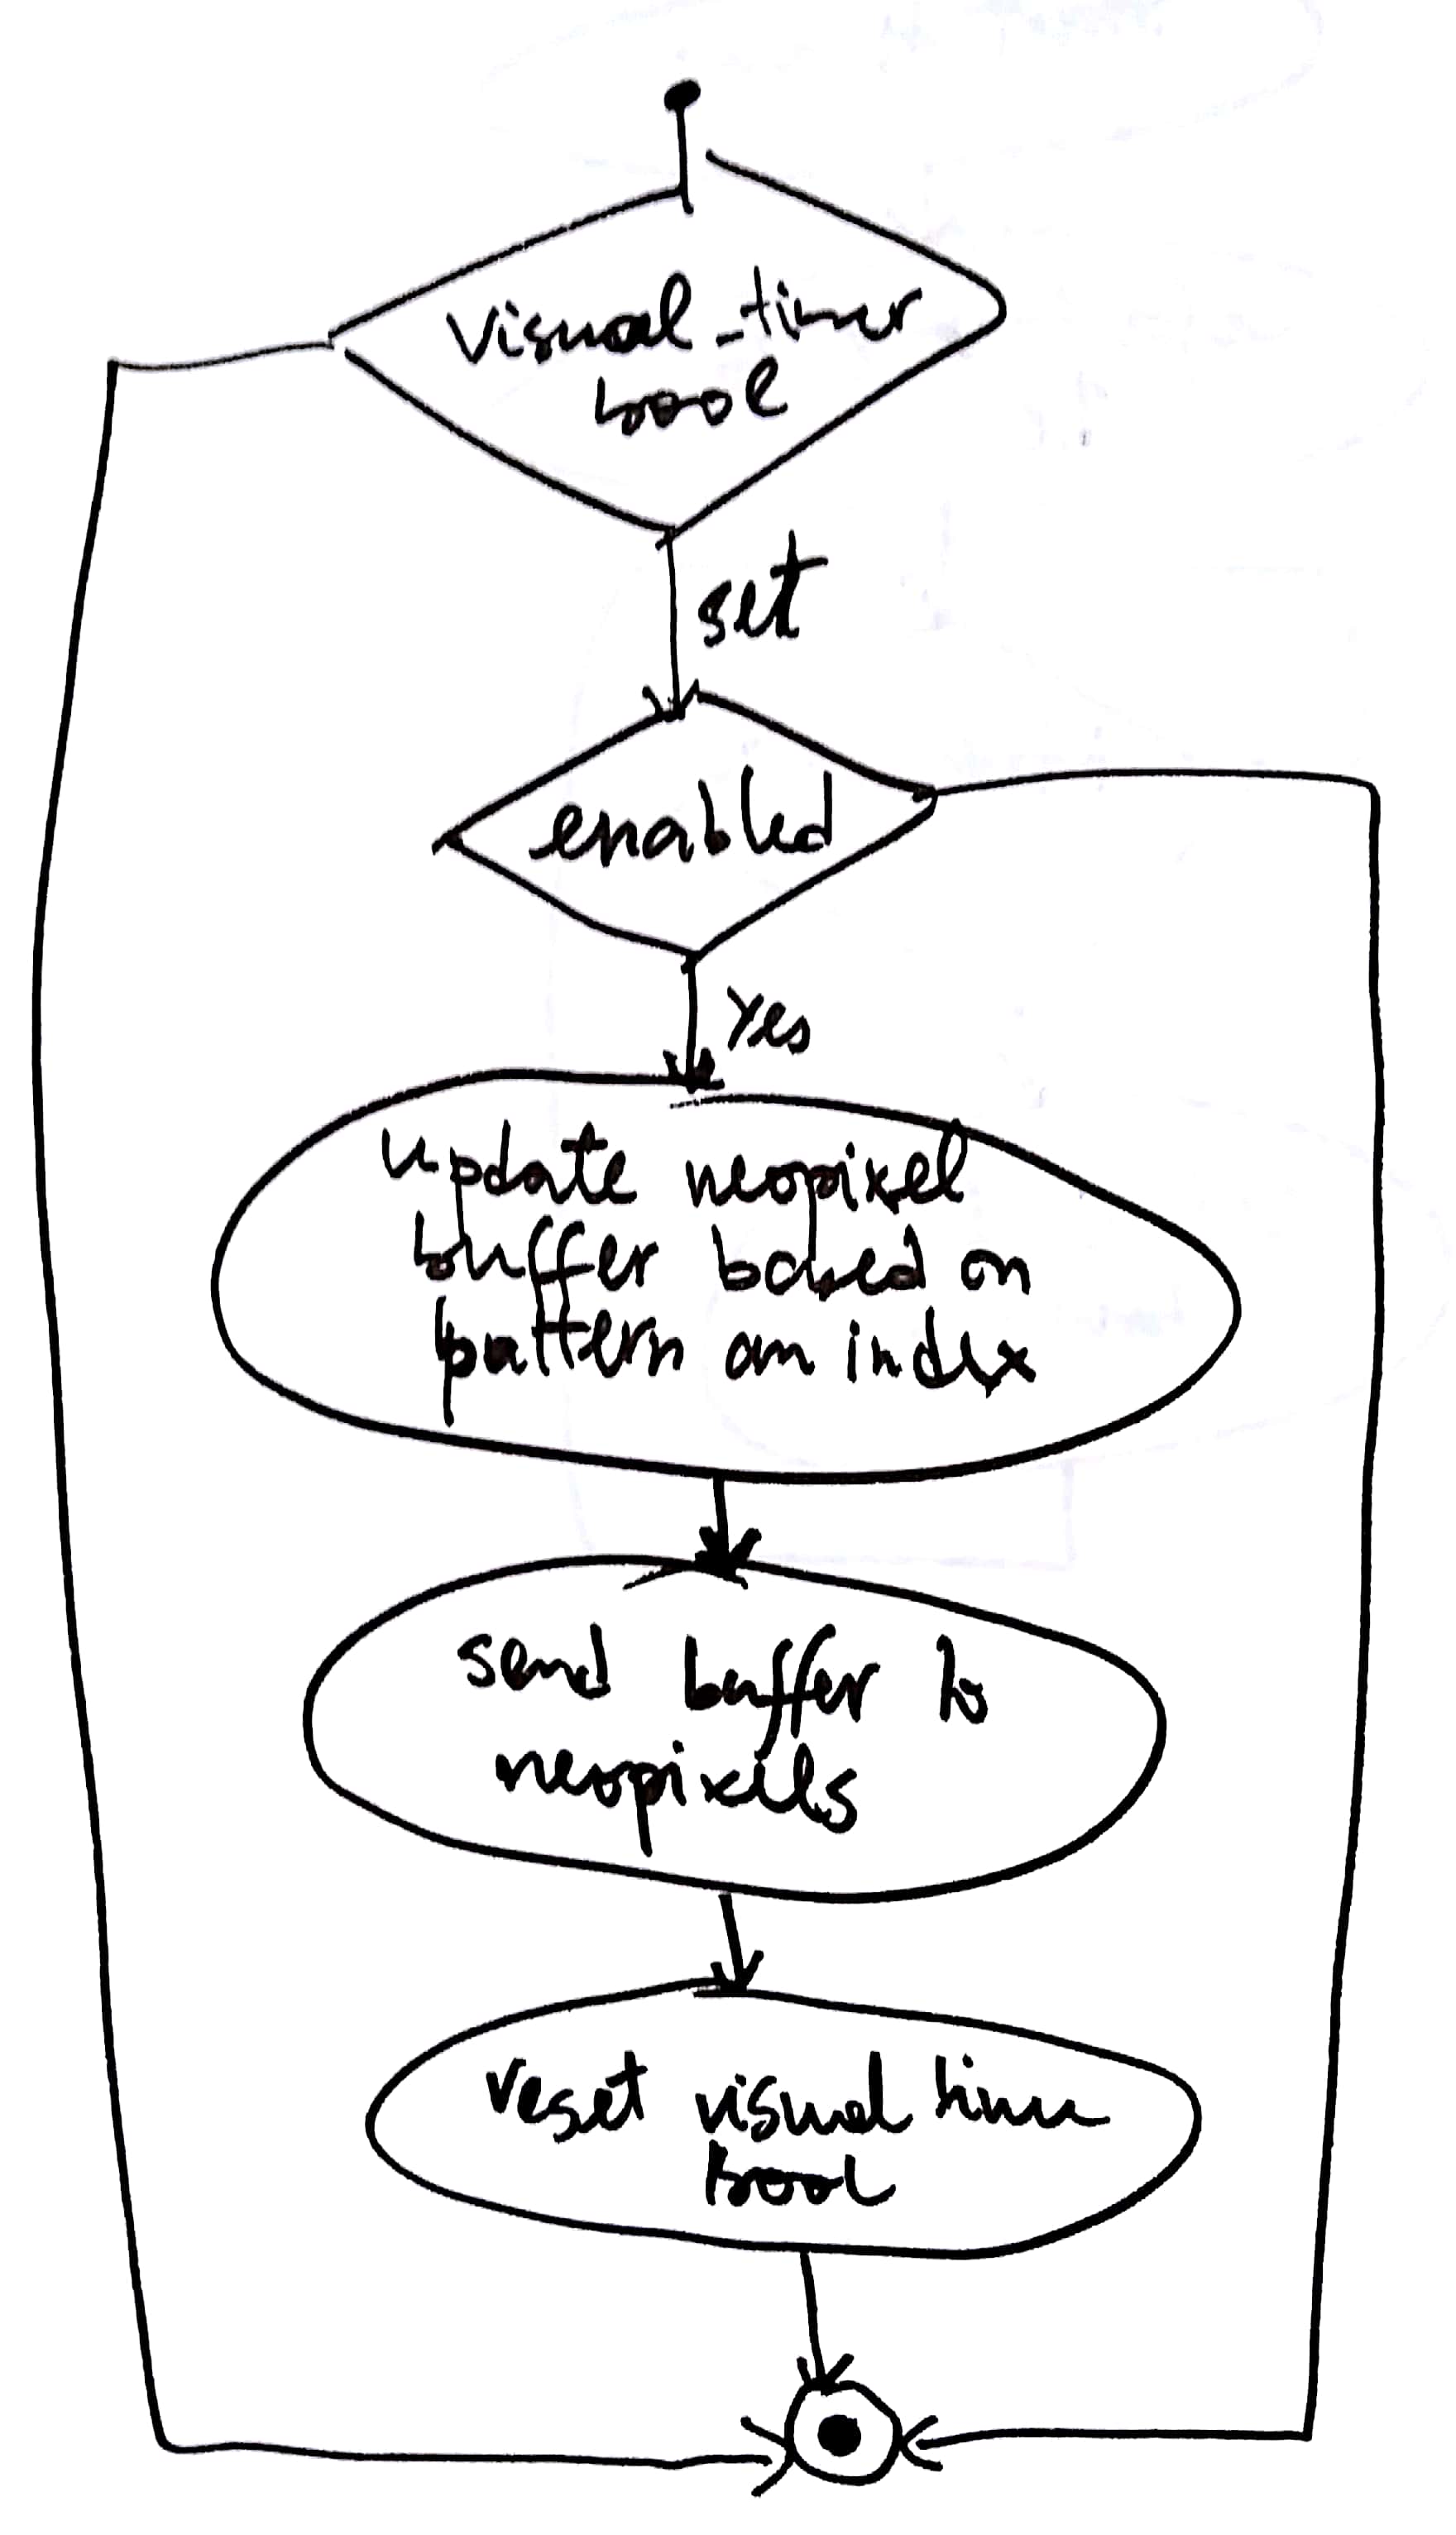 visual_timer
bool
set
enabled
Yes
update neopixel
buffer based on
pattern an index
send buffer to
neopixels
reset visual timer
bool